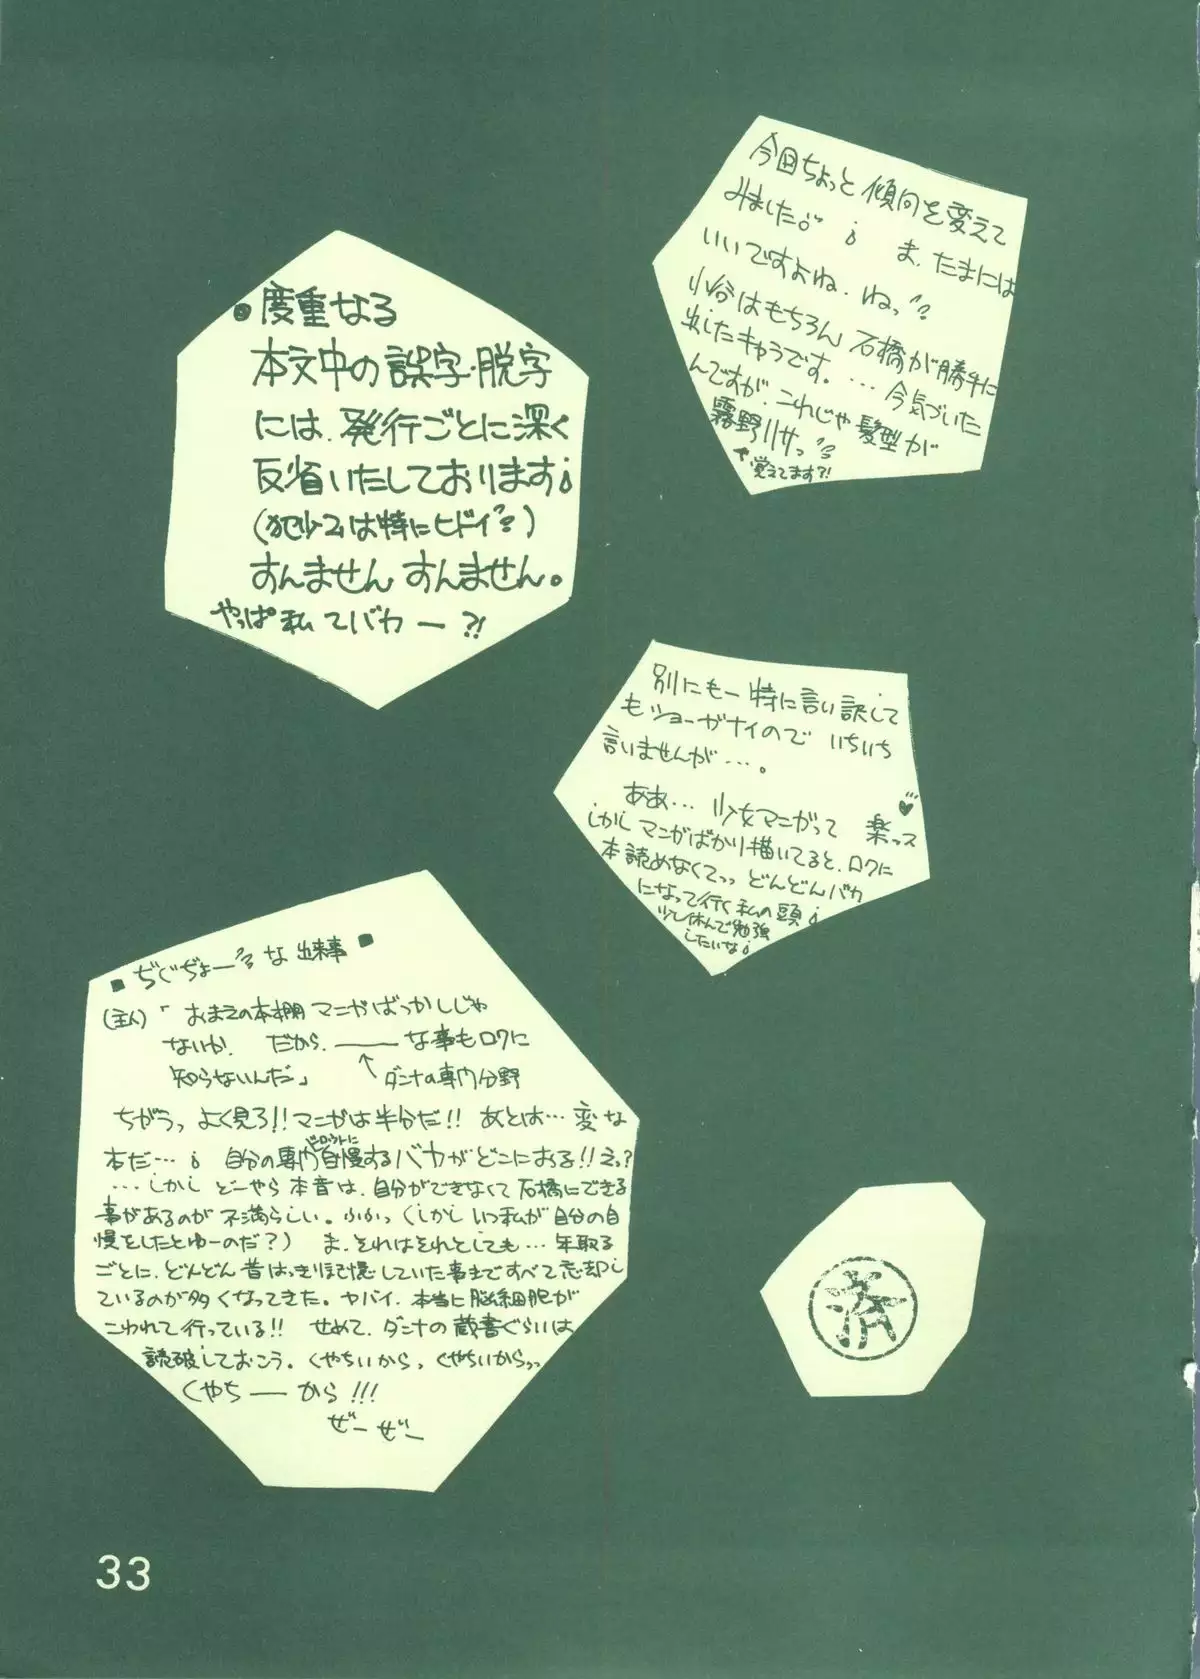 今回ちょっと傾向を変えて
みました。 ま、たまには
いいですよね、ねっ
小谷はもちろん石橋が勝手に
出したキャラです。…今気づいた
んですが、これじゃ髪型が
霧野リサっ
覚えてます?!
度重なる
本文中の誤字・脱字
には、発行ごとに深く
反省いたしております
(は特にヒドイ)
すんません すんません。
やっぱ私てバカー?!
別にもー特に言い訳して
もショーがナイので いちいち
言いませんが…。
ああ… 少女マンガって 楽っス
しかしマンガばかり描いてると、ロクに
本読めなくてっっ どんどんバカ
になって行く私の頭
少し休んで勉強
したいな
■ ぢぐぢょーな出来事 ■
(主人)「おまえの本棚マンガばっかしじゃ
ないか。 だから、——な事もロクに
知らないんだ」 ↑ダンナの専門分野
ちがうっ よく見ろ!!マンガは半分だ!! あとは… 変な
本だ… 自分の専門自慢するバカがどこにおる!!えっ?
…しかし どーやら本音は、自分ができなくて石橋にできる
事があるのが不満らしい。ふふっ(しかしいつ私が自分の自
慢をしたとゆーのだ?) ま、それはそれとしても… 年取る
ごとに、どんどん昔はっきり記憶していた事まですべて忘却し
ているのが多くなってきた。ヤバイ、本当に脳細胞が
こわれて行っている!! せめて、ダンナの蔵書ぐらいは
読破しておこう。くやちいから、くやちいからっっ
くやちーから!!!
ぜーぜー
済
33